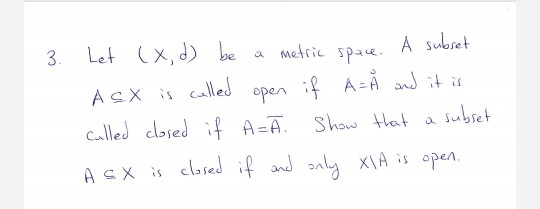 3. Let (X,d) be a metric space. A subset
A ⊆ X is called open if A=Å and it is
called closed if A=A̅. Show that a subset
A ⊆ X is closed if and only X\A is open.